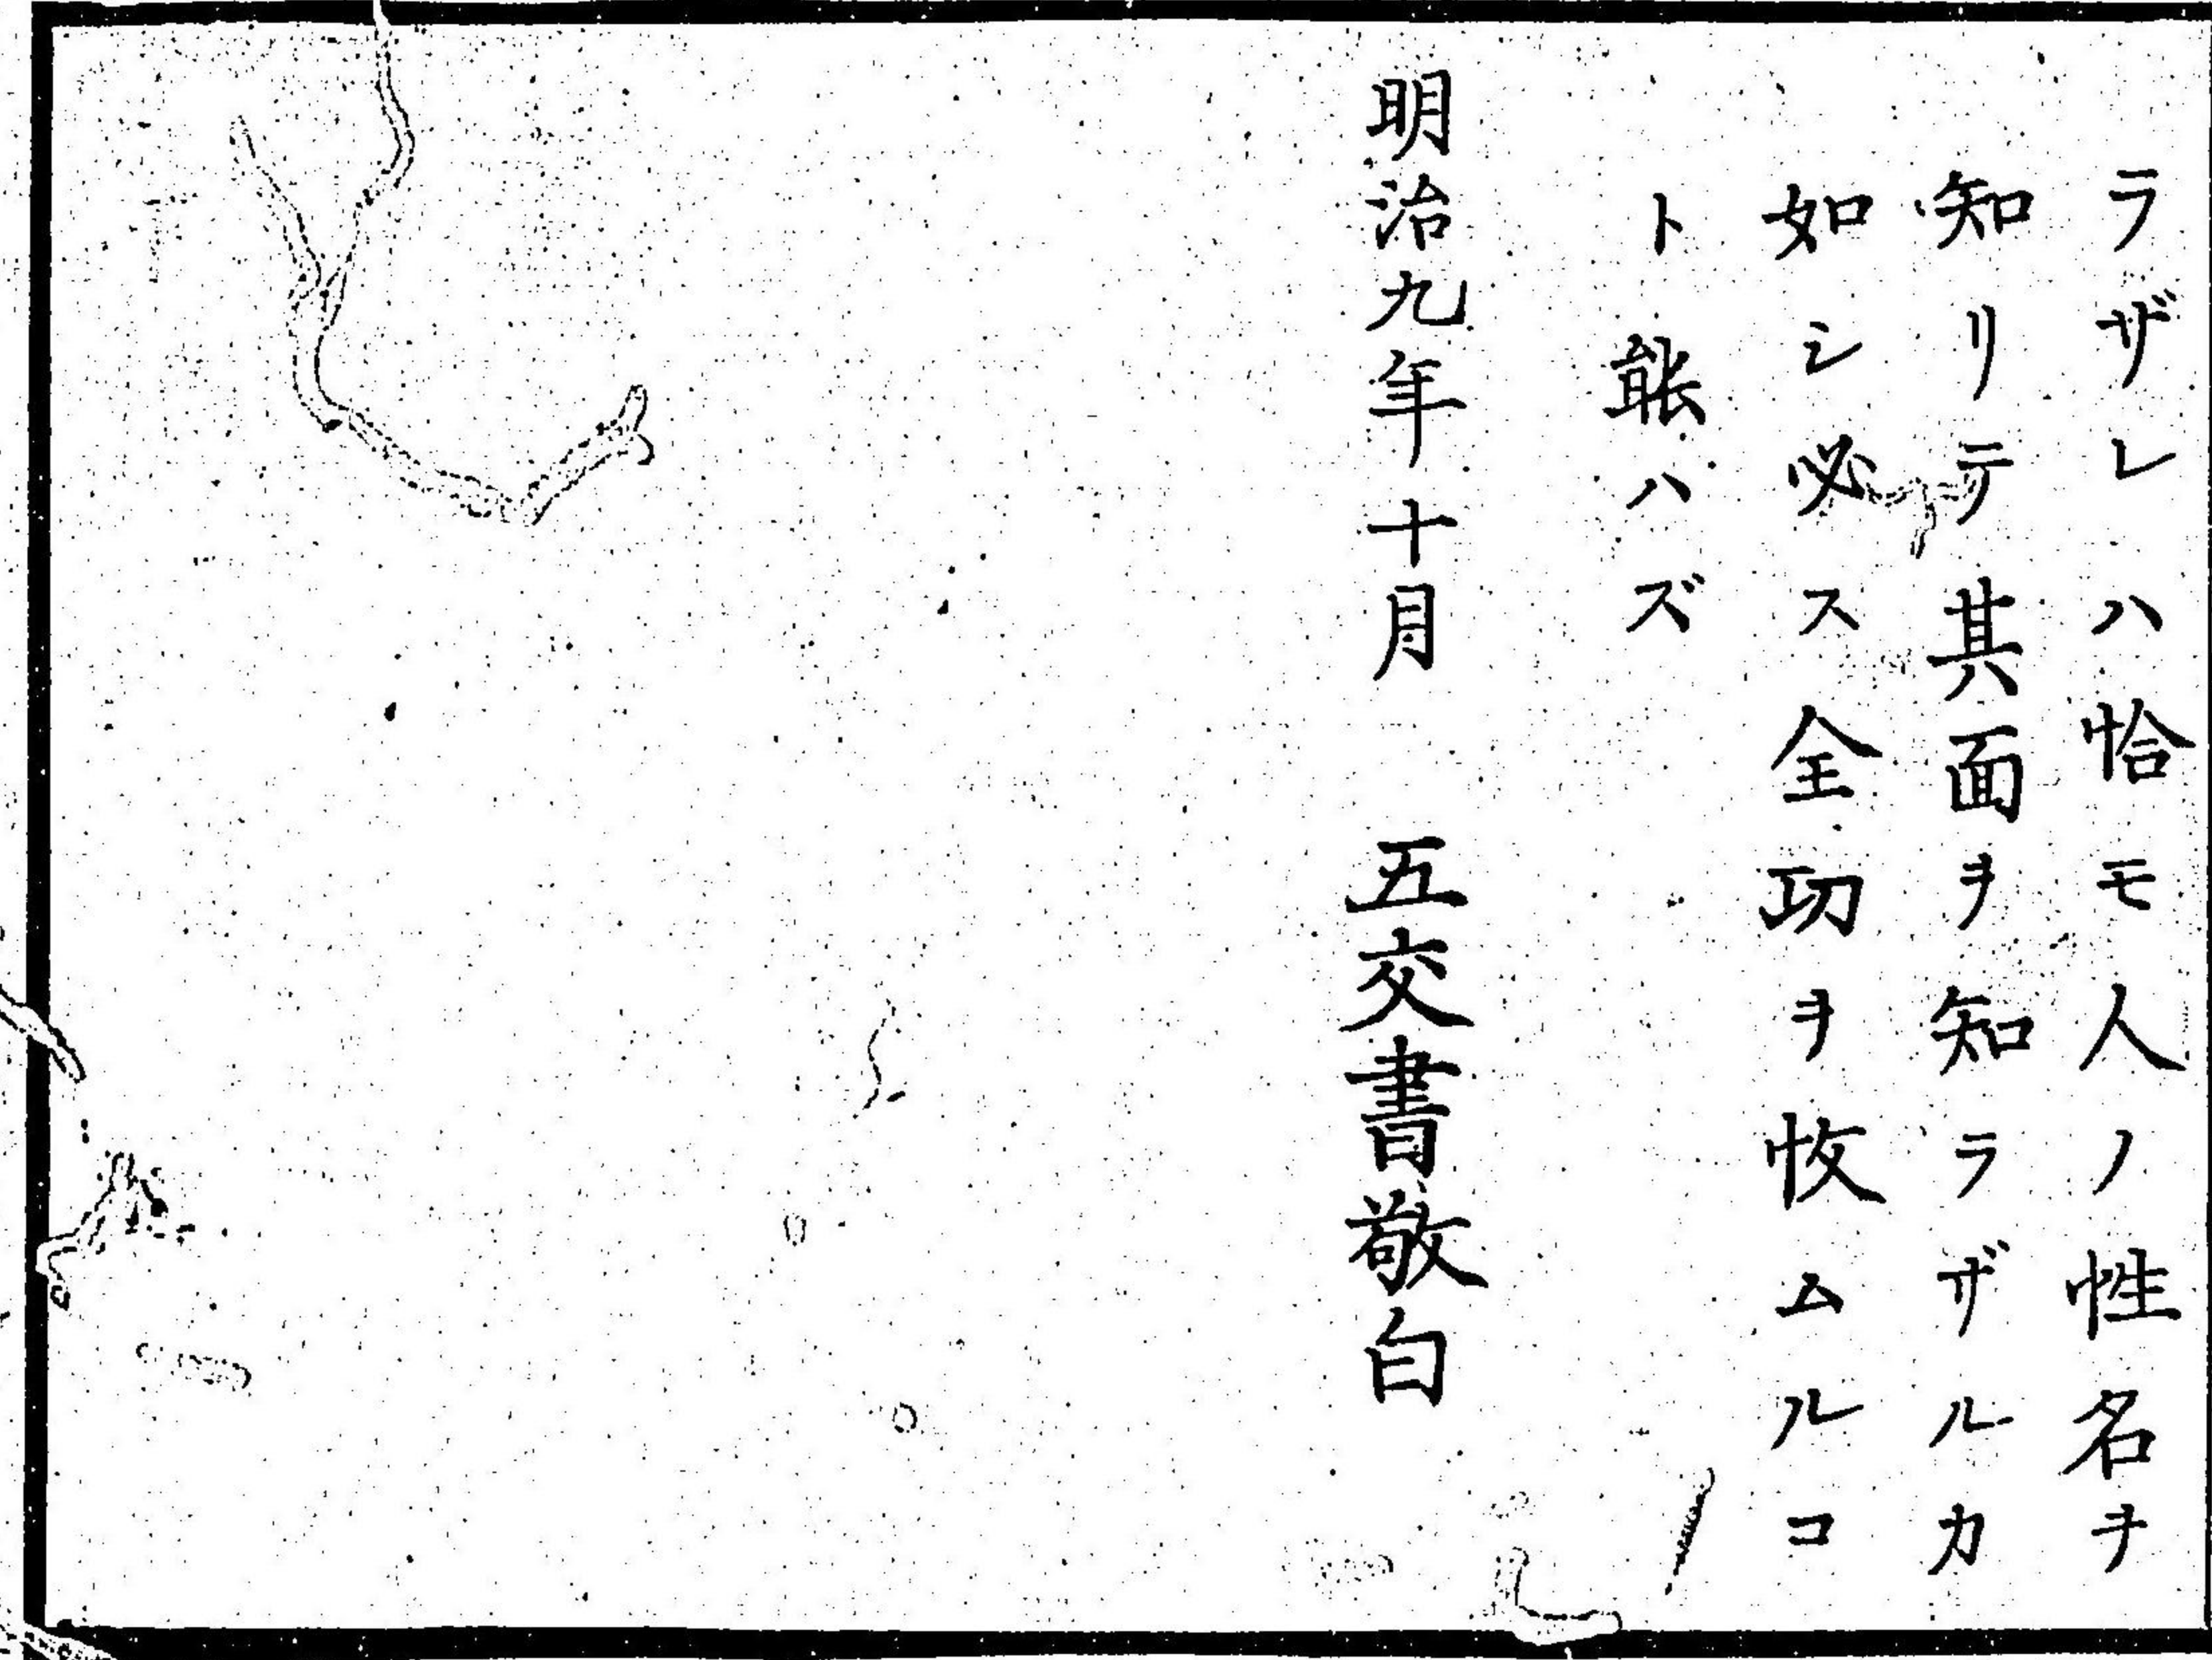 ラザレハ恰モ人ノ性名ヲ
知リテ其面ヲ知ラザルカ
如シ必ス全功ヲ收ムルコ
ト能ハズ
明治九年十月　五交書敬白